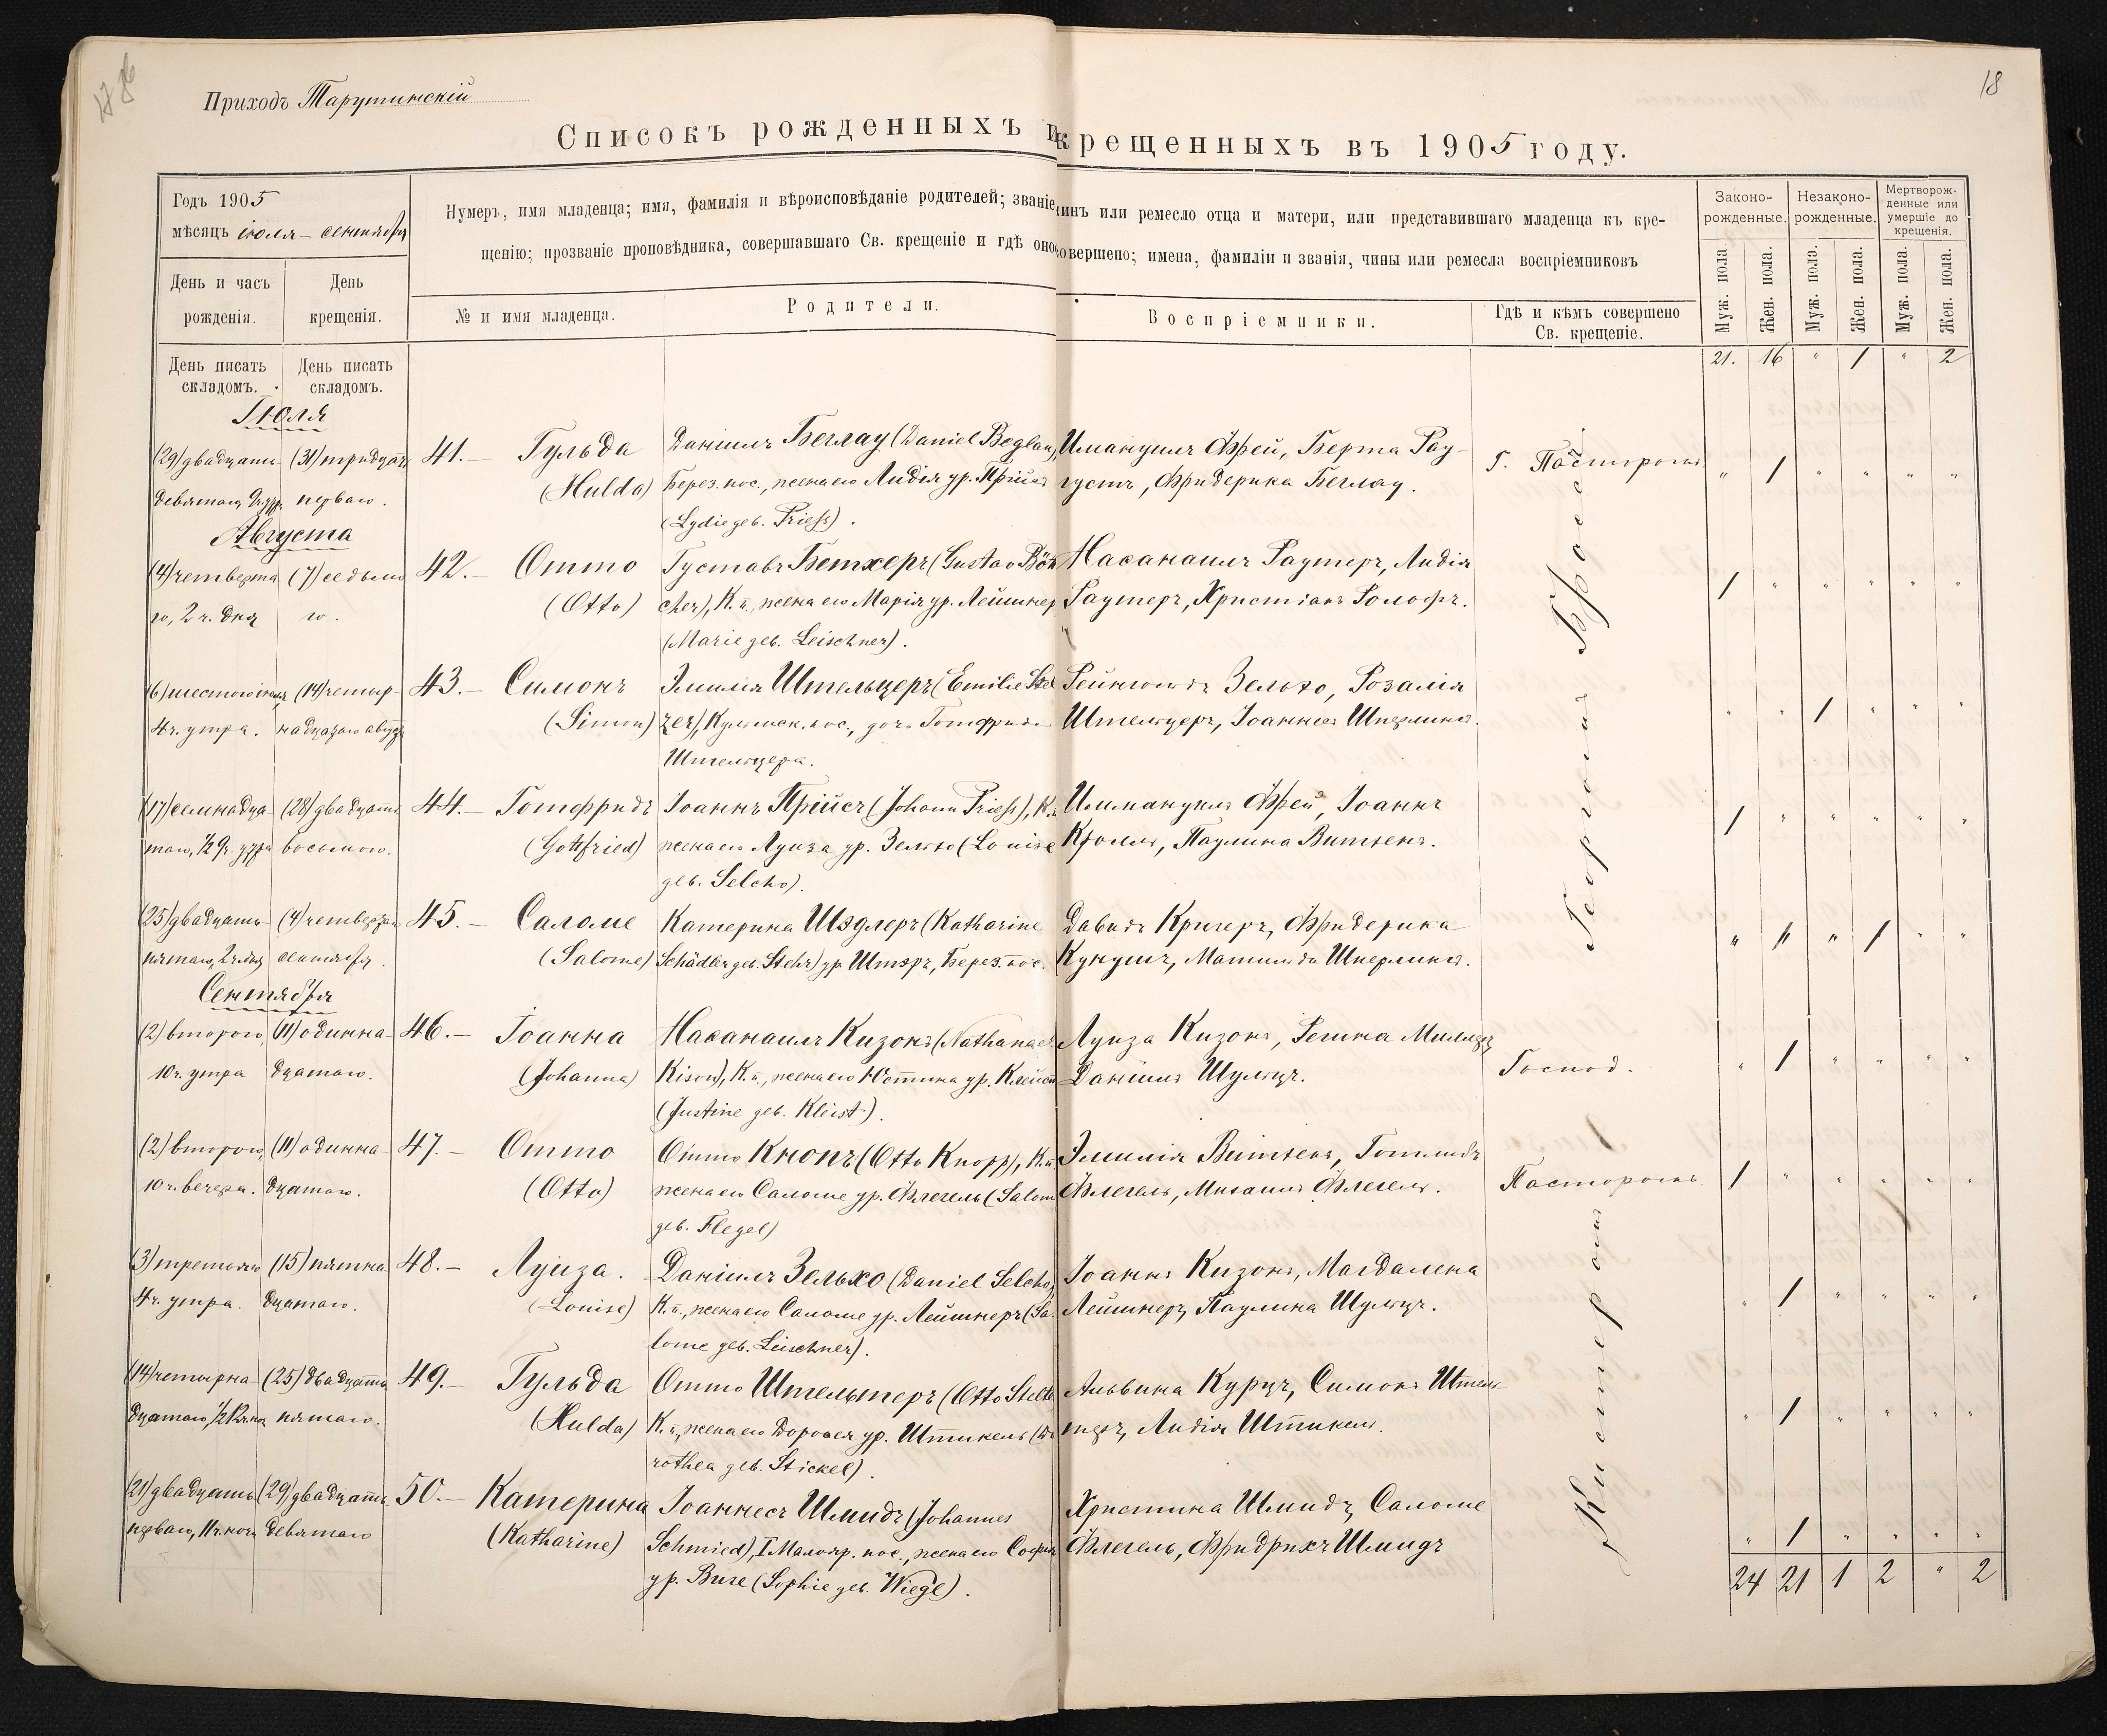 18
Приходъ Тарутинскій
Списокъ рожденныхъ и крещенныхъ въ 1905 году.
Годъ 1905
мѣсяцъ іюля – сентября
День и часъ рожденія.
День крещенія.
Нумеръ, имя младенца; имя, фамилія и вѣроисповѣданіе родителей; званіе, чинъ или ремесло отца и матери, или представившаго младенца къ кре-
щенію; прозваніе проповѣдника, совершавшаго Св. крещеніе и гдѣ оно совершено; имена, фамиліи и званія, чины или ремесла воспріемниковъ
№ и имя младенца.
Родители.
Воспріемники.
Гдѣ и кѣмъ совершено Св. крещеніе.
Законо-рожденные.
Незаконо-рожденные.
Мертворож-денные или умершіе до крещенія.
Муж. пола. Жен. пола. Муж. пола. Жен. пола. Муж. пола. Жен. пола.
День писать складомъ.
День писать складомъ.
21. 16 " 1 " 2
Іюля
(29) двадцать (31) тридцать 41.– Гульда Даніилъ Беглау (Daniel Beglau), Имануилъ Фрей, Берта Рау- Г. Пасторомъ " 1 " " " "
девятаго перваго. (Hulda) Берез. пос., жена его Лидія ур. Прійсъ густъ, Фридерика Беглау.
(Lydie geb. Priess).
Августа
(4) четверта (7) седьма 42.– Отто Густавъ Бетхеръ (Gustav Böt Насанаилъ Раутеръ, Лидія 1 " " " " "
го, 2 ч. дня го. (Otto) cher), К. п., жена его Марія ур. Лейшнер Раутеръ, Христіанъ Рологъ.
(Marie geb. Leischner).
(6) шестого (14) четыр- 43.– Симонъ Эмилія Штельцеръ (Emilie Stel Рейнгольдъ Зельхо, Розалія " " 1 " " "
4 ч. утра. надцатаго (Simon) zer), Кульмск. пос., дочь Готфрида Штельцеръ, Іоаннесъ Шперлингъ.
Штельцера.
(17) семнадца (28) двадцать 44.– Готфридъ Іоаннъ Прійсъ (Johann Priess), К. п. Иммануилъ Фрей, Іоаннъ 1 " " " " "
таго, ½ 9 ч. утра восьмого. (Gottfried) жена его Луиза ур. Зельхо (Louise Кролль, Паулина Витченъ.
geb. Selcho).
(25) двадцать (4) четвертаго 45.– Саломе Катерина Шэдлеръ (Katharine Давидъ Кригеръ, Фридерика " " " 1 " "
пятаго, 2 ч. дня сентября. (Salome) Schädler geb. Stehr) ур. Штэръ, Берез. пос. Кунушъ, Матильда Шперлингъ.
Сентября
(2) второго (11) одинна- 46.– Іоанна Насанаилъ Кизонъ (Nathanael Луиза Кизонъ, Регина Миллеръ, Господ. " 1 " " " "
10 ч. утра дцатаго. (Johanna) Kison), К. п., жена его Юстина ур. Клейст Даніилъ Шульцъ.
(Justine geb. Kleist).
(2) второго, (11) одинна- 47.– Отто Отто Кнопъ (Otto Knopp), К. п. Эмилія Витченъ, Готлибъ Пасторомъ 1 " " " " "
10 ч. вечера. дцатаго. (Otto) жена его Саломе ур. Флегель (Salome Флегель, Михаилъ Флегель.
geb. Flegel)
(3) третьяго (15) пятна- 48.– Луиза. Даніилъ Зельхо (Daniel Selcho), Іоаннъ Кизонъ, Магдалена " 1 " " " "
4 ч. утра. дцатаго. (Louise) К. п., жена его Саломе ур. Лейшнеръ (Sa- Лейшнеръ, Паулина Шульцъ.
lome geb. Leischner).
(14) четырна- (25) двадцать 49.– Гульда Отто Штельтеръ (Otto Stelte Альвина Курцъ, Симонъ Штель- " 1 " " " "
дцатаго, пятаго. (Hulda) К. п., жена его Доротея ур. Штикель (Do теръ, Лидія Штикель.
rothea geb. Stickel).
(21) двадцать (29) двадцать 50.– Катерина Іоаннесъ Шмидъ (Johannes Христина Шмидъ, Саломе " 1 " " " "
перваго, 11 ч. ночи девятаго (Katharine) Schmied), I Малояр. пос., жена его Софія Флегель, Фридрихъ Шмидъ
ур. Виге (Sophie geb. Wiege).
Кистеромъ ГеоргомъБроссъ.
24 21 1 2 " 2